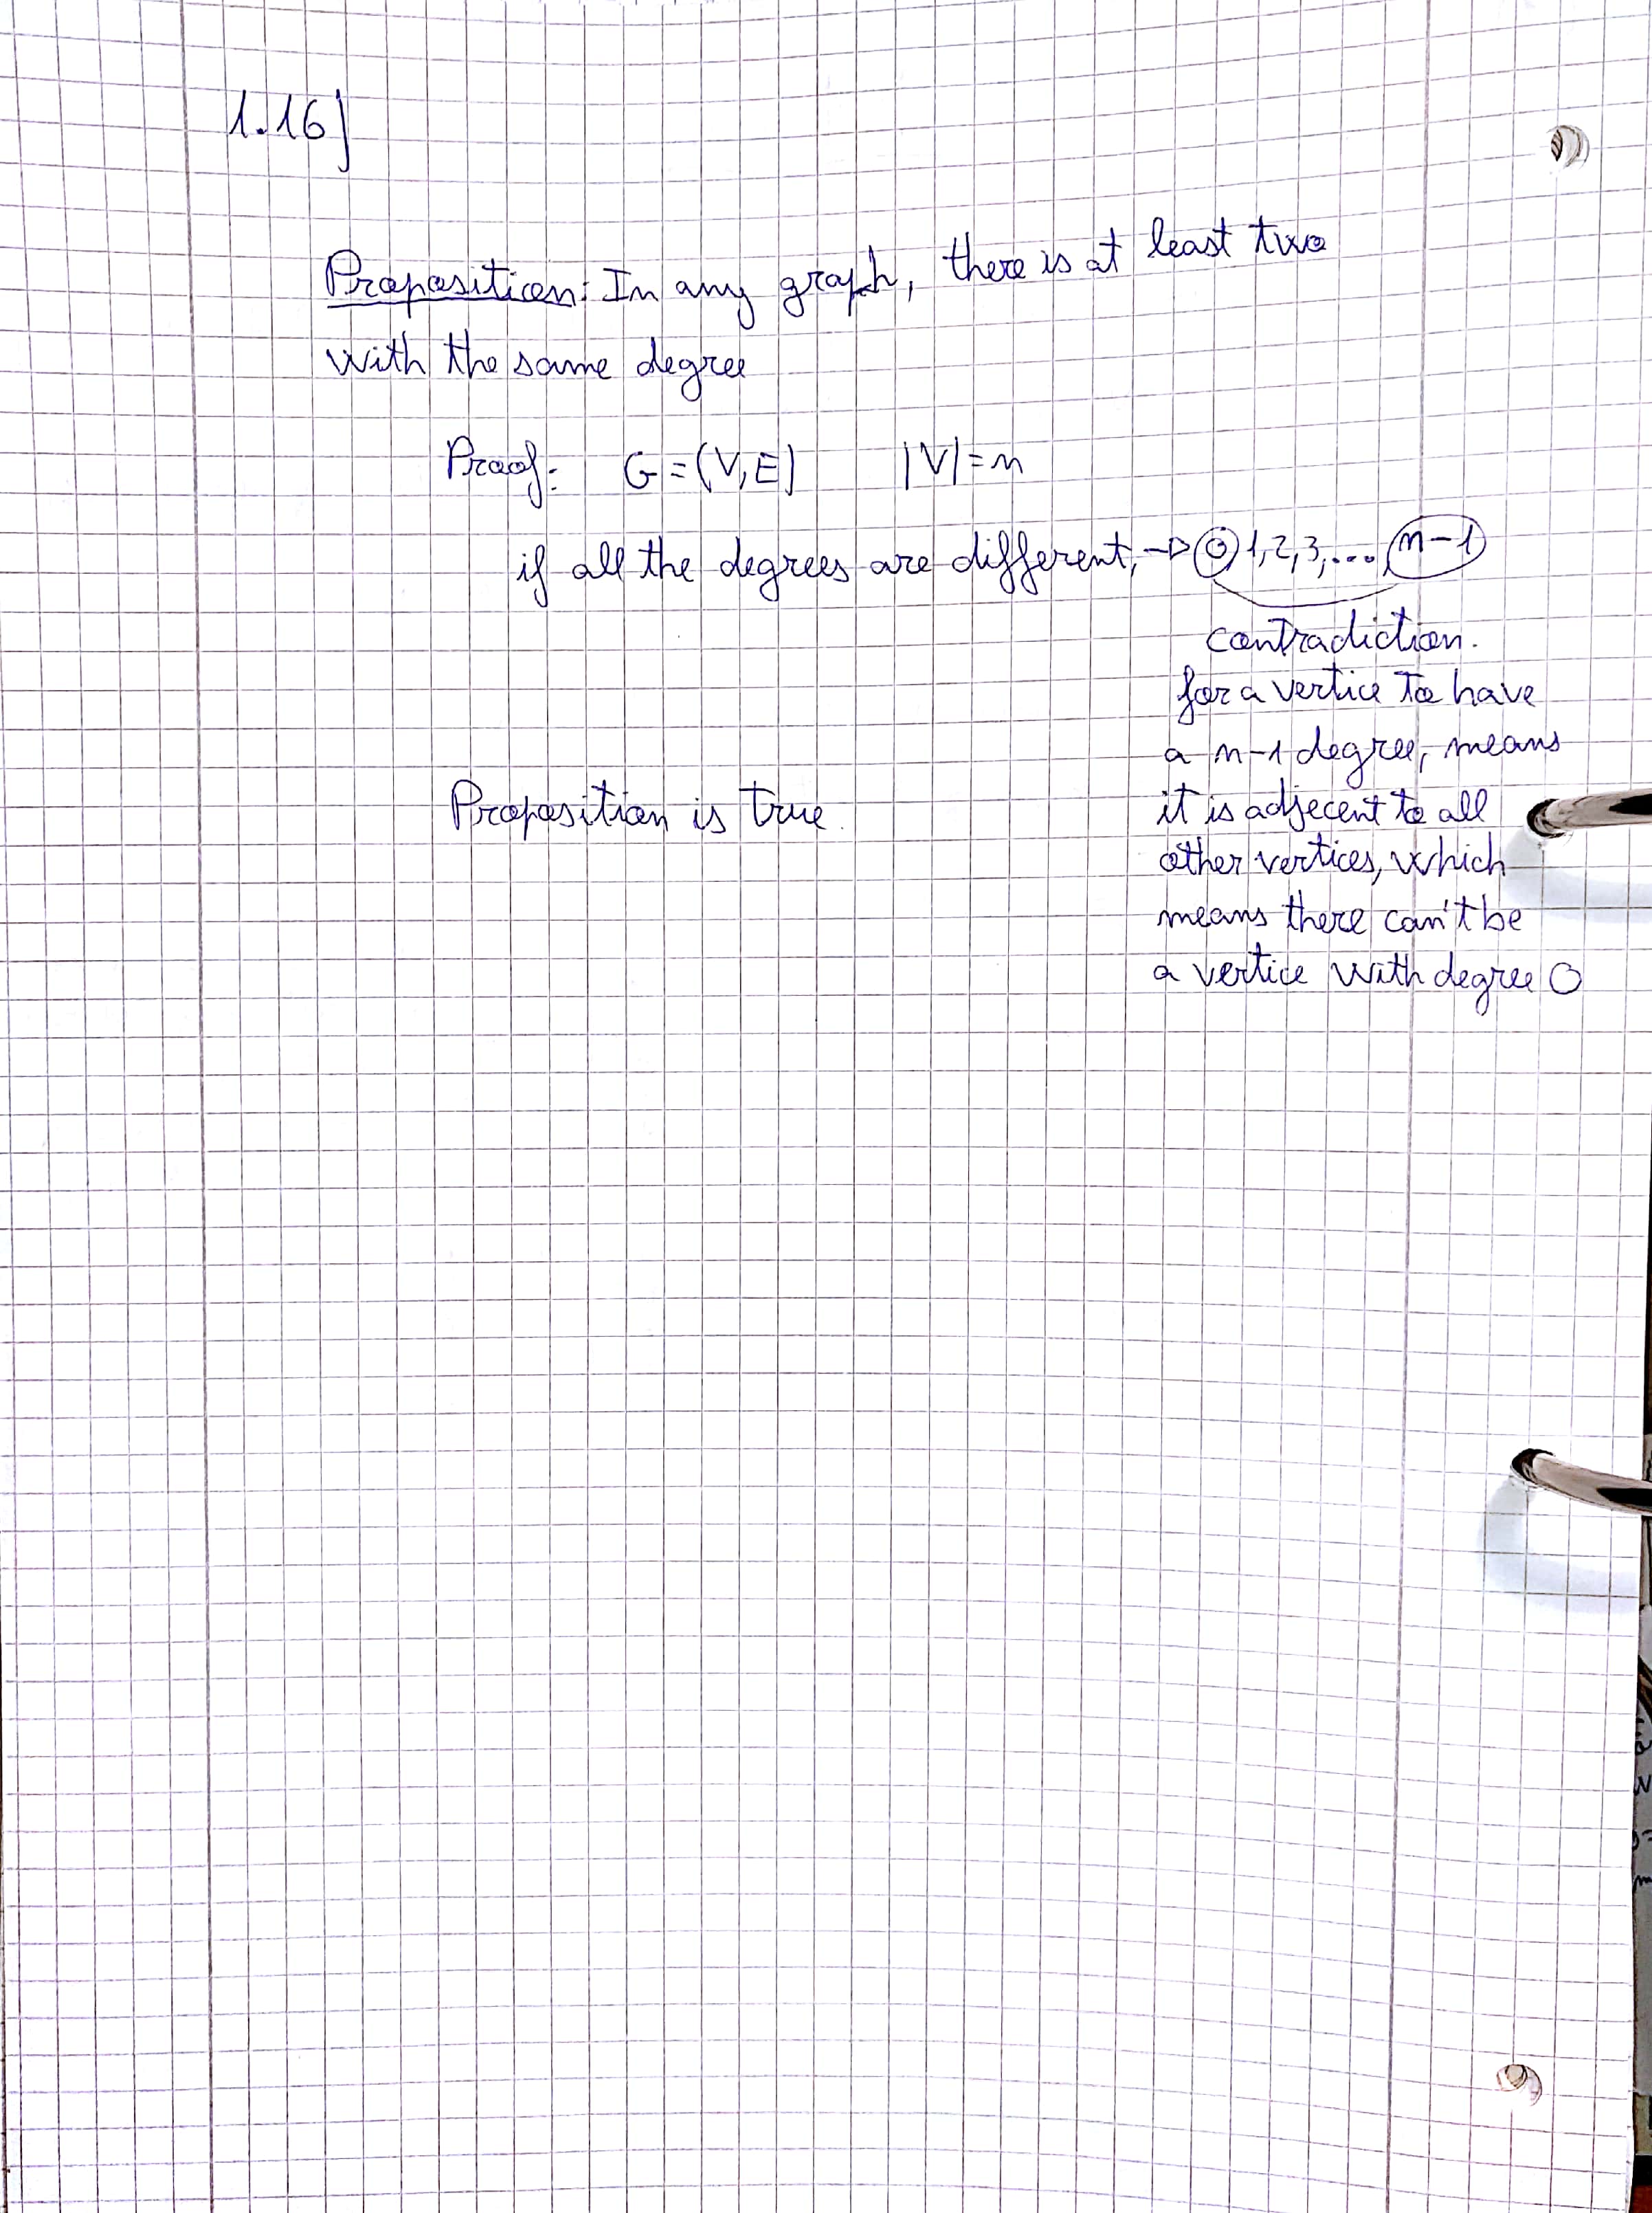 1.16)
Proposition: In any graph, there is at least two
with the same degree
Proof: G = (V, E) |V| = n
if all the degrees are different, → 0 1, 2, 3, ..., n-1
contradiction.
for a vertice to have
a n-1 degree, means
it is adjecent to all
Proposition is true.
other vertices, which
means there can't be
a vertice with degree 0